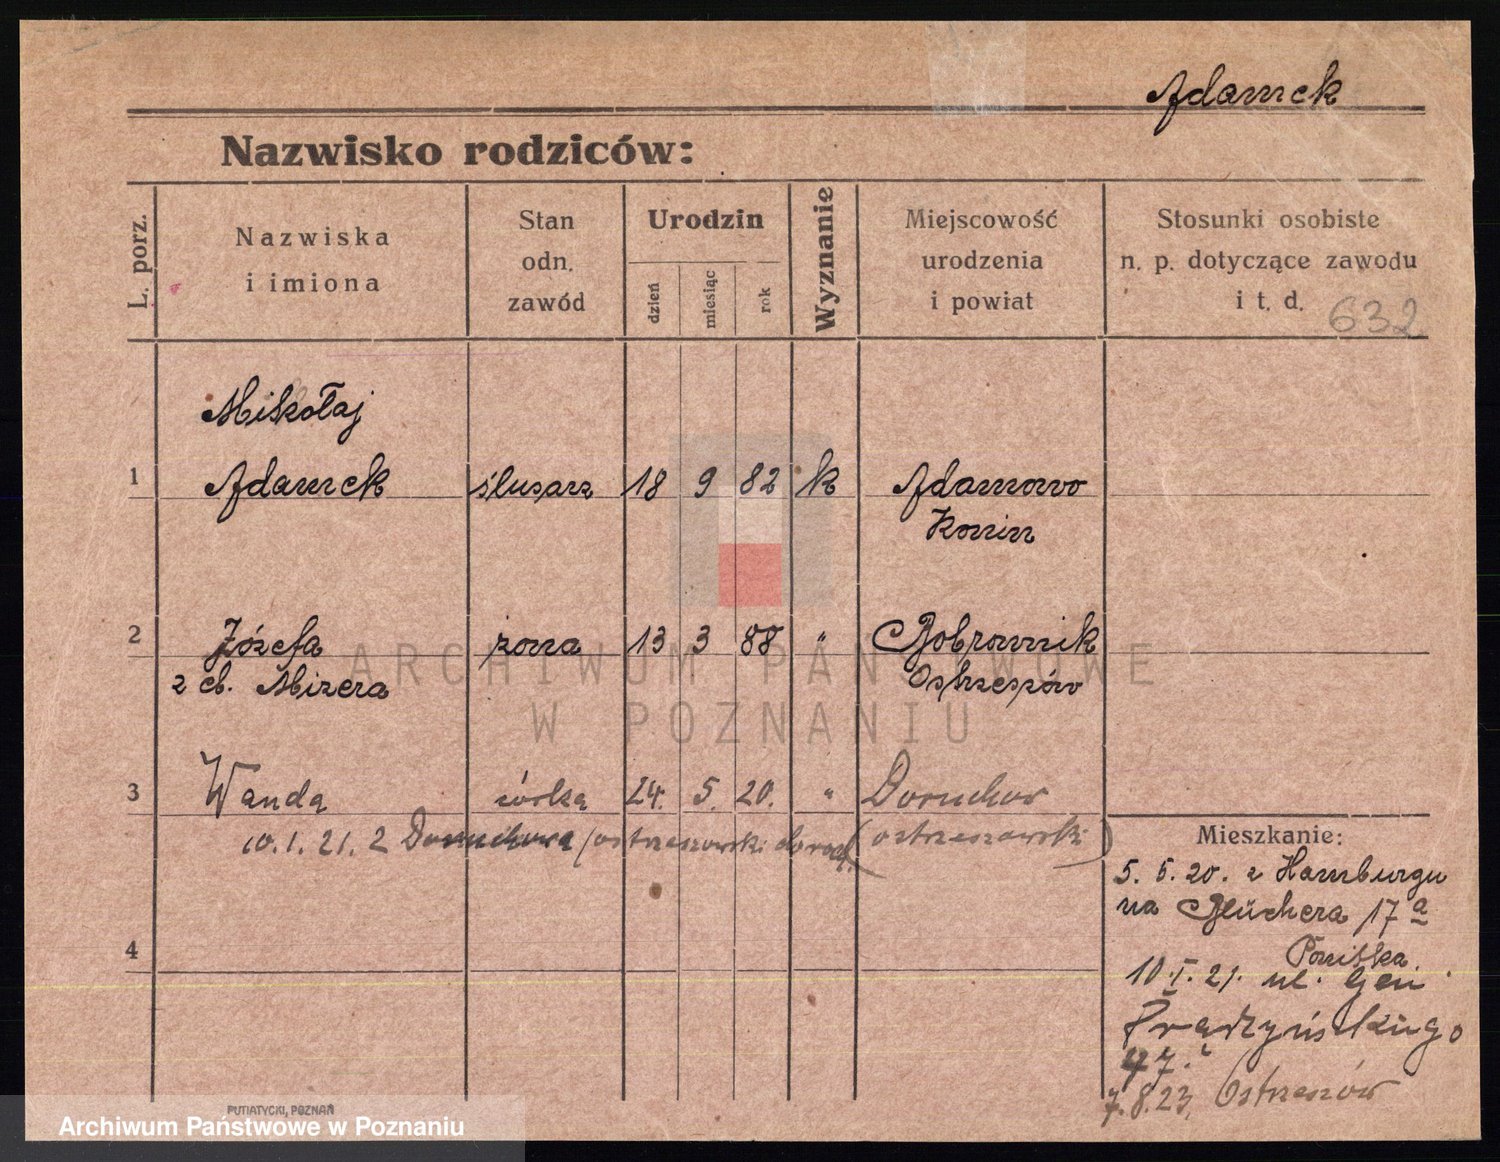 Adamek
Nazwisko rodziców:
L. porz.
Nazwiska
i imiona
Stan
odn.
zawód
Urodzin
dzień
miesiąc
rok
Wyznanie
Miejscowość
urodzenia
i powiat
Stosunki osobiste
n. p. dotyczące zawodu
i t. d.
632
Mikołaj
1 Adamek ślusarz 18 9 82 k Adamowo
Konin
2 Józefa żona 13 3 88 " Bobrownik
z ch. Mizera Ostrzeszów
3 Wanda córka 24. 5. 20. " Doruchow
10.1.21. z Doruchowa (ostrzeszowski (ostrzeszowski)
4
Mieszkanie:
5. 5. 20. z Hamburgu
na Blüchera 17 a
10.I.21. ul. Gen
Prądzyńskiego
47.
7.8.23, Ostrzeszów
PUTIATYCKI, POZNAŃ
ARCHIWUM PAŃSTWOWE
W POZNANIU
Archiwum Państwowe w Poznaniu